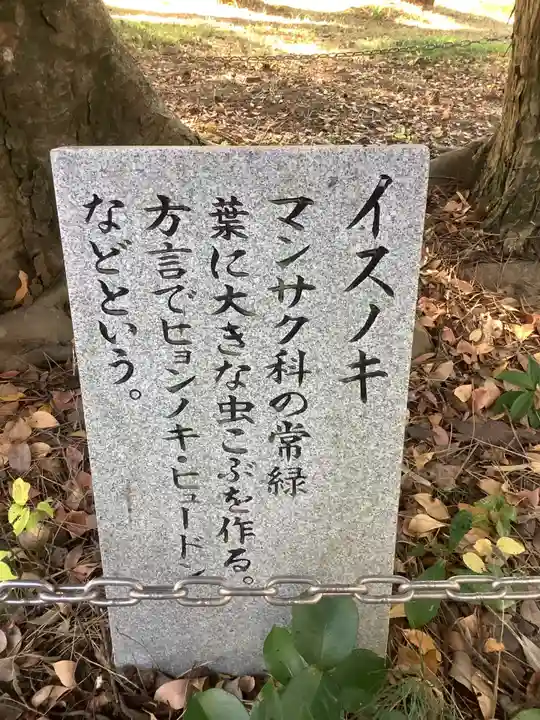 イスノキ
マンサク科の常緑
葉に大きな虫こぶを作る。
方言でヒョンノキ・ヒュードン
などという。